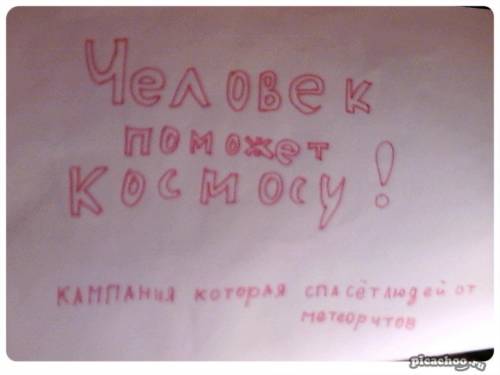 Человек
поможет
Космосу!
КАМПАНИЯ которая спасёт людей от
метеоритов
picachoo.ru